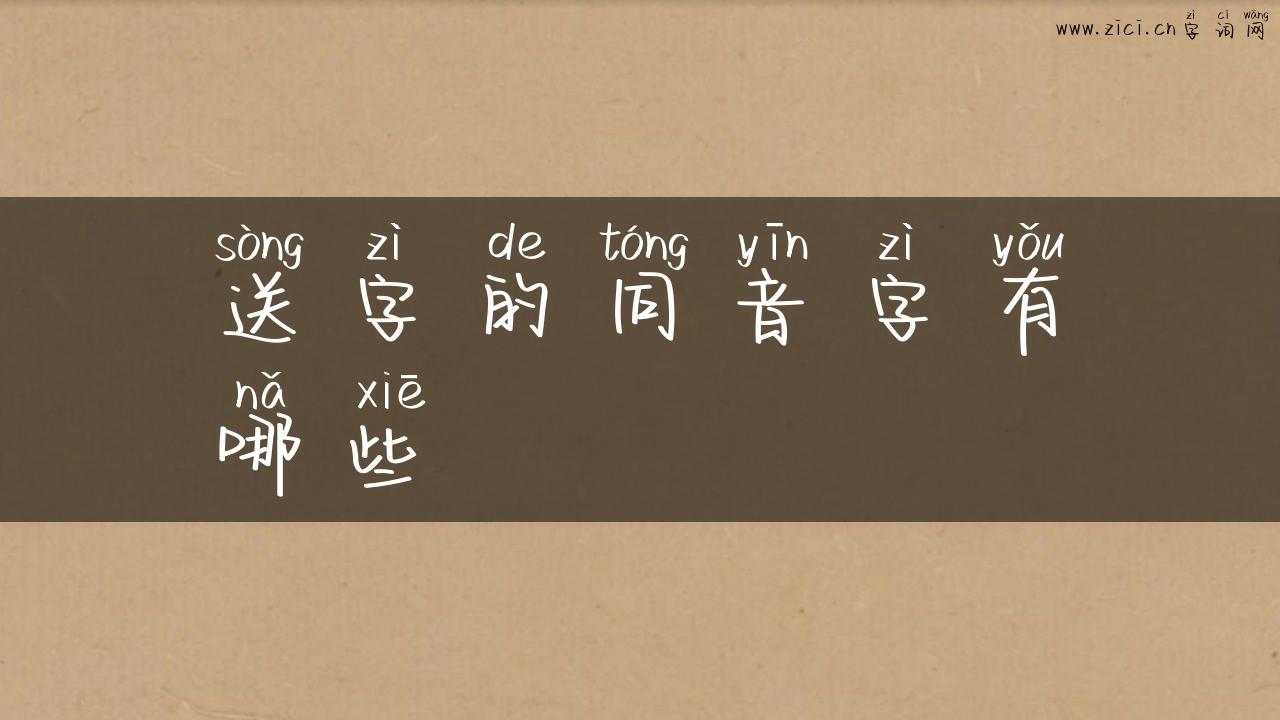 zì cí wǎng
www.zici.cn字词网
sòng zì de tóng yīn zì yǒu
送字的同音字有
nǎ xiē
哪些